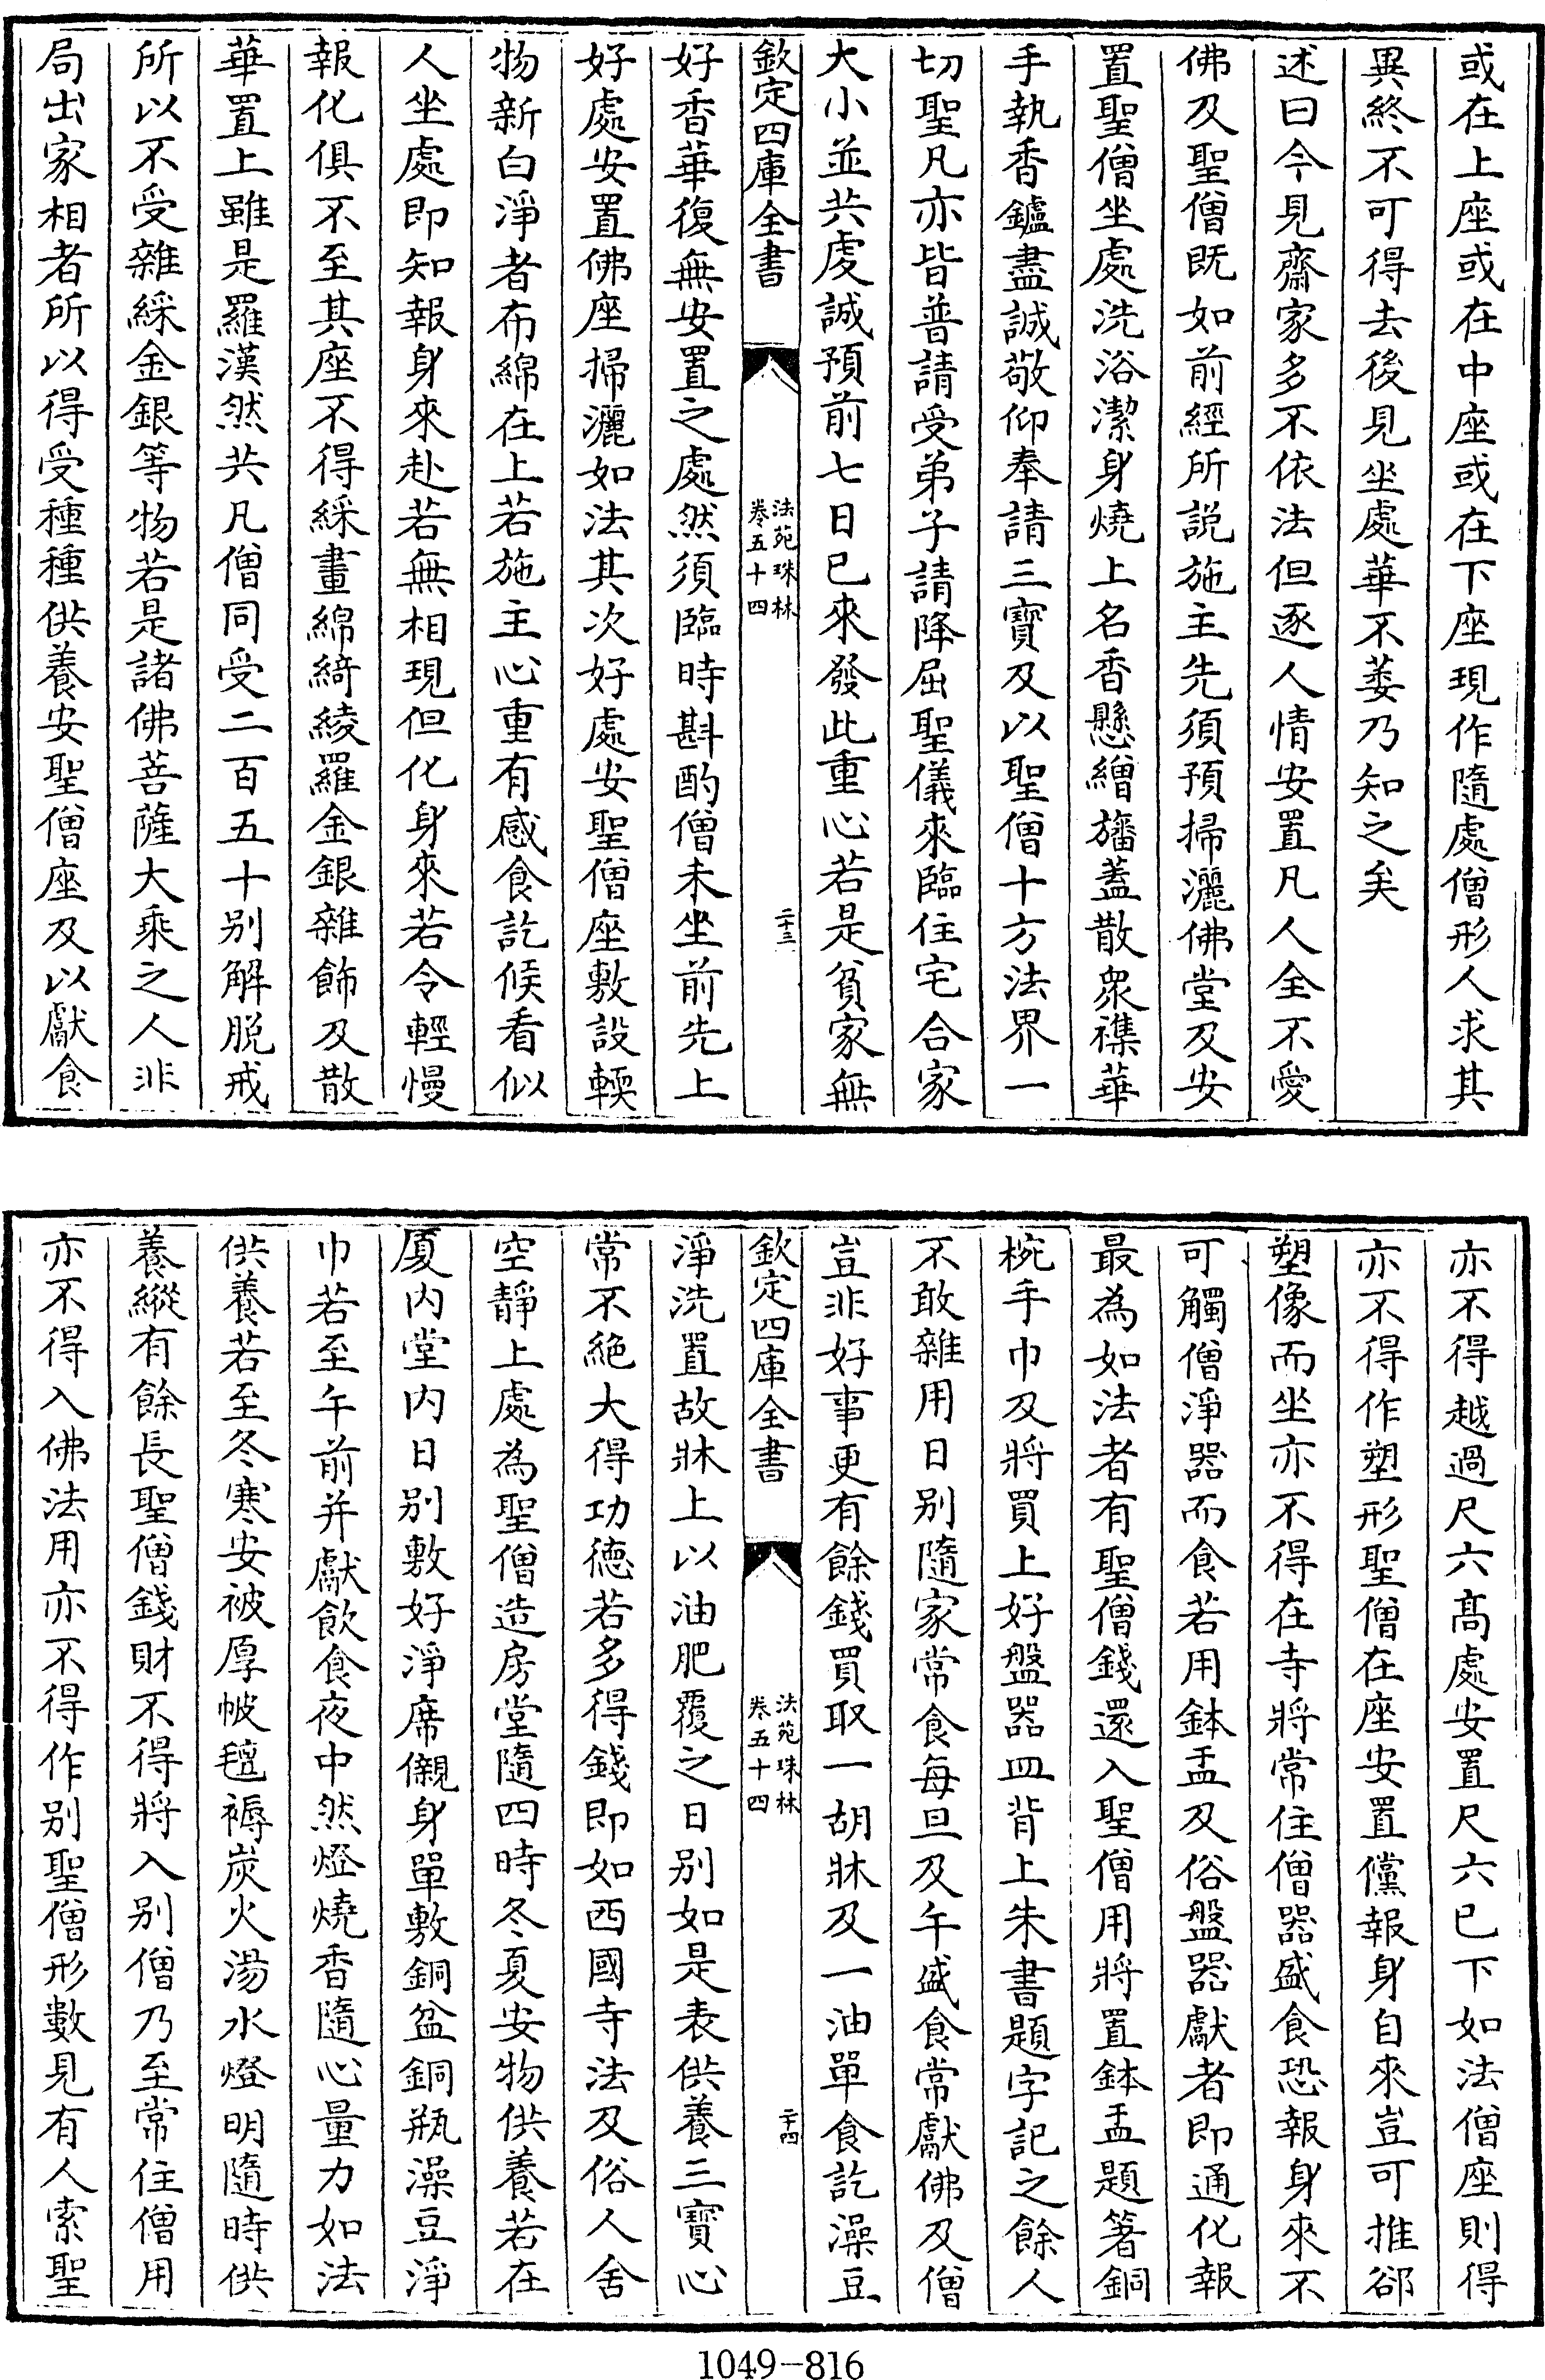 或在上座或在中座或在下座現作隨處僧形人求其
異終不可得去後見坐處華不萎乃知之矣
述曰今見齋家多不依法但逐人情安置凡人全不愛
佛及聖僧既如前經所説施主先須預掃灑佛堂及安
置聖僧坐處洗浴潔身燒上名香懸繒旛蓋散衆襍華
手執香鑪盡誠敬仰奉請三寶及以聖僧十方法界一
切聖凡亦皆普請受弟子請降屈聖儀來臨住宅合家
大小並共虔誠預前七日已來發此重心若是貧家無
欽定四庫全書
法苑珠林
卷五十四
二十三
好香華復無安置之處然須臨時斟酌僧未坐前先上
好處安置佛座掃灑如法其次好處安聖僧座敷設輭
物新白淨者布綿在上若施主心重有感食訖候看似
人坐處即知報身來赴若無相現但化身來若令輕慢
報化俱不至其座不得綵畫綿綺綾羅金銀雜飾及散
華置上雖是羅漢然共凡僧同受二百五十别解脱戒
所以不受雜綵金銀等物若是諸佛菩薩大乘之人非
局出家相者所以得受種種供養安聖僧座及以獻食
亦不得越過尺六髙處安置尺六已下如法僧座則得
亦不得作塑形聖僧在座安置儻報身自來豈可推郤
塑像而坐亦不得在寺將常住僧器盛食恐報身來不
可觸僧淨器而食若用鉢盂及俗盤器獻者即通化報
最為如法者有聖僧錢還入聖僧用將置鉢盂題箸銅
椀手巾及將買上好盤器皿背上朱書題字記之餘人
不敢雜用日别隨家常食每旦及午盛食常獻佛及僧
豈非好事更有餘錢買取一胡牀及一油單食訖澡豆
欽定四庫全書
法苑珠林
卷五十四
二十四
淨洗置故牀上以油肥覆之日别如是表供養三寶心
常不絶大得功德若多得錢即如西國寺法及俗人舍
空靜上處為聖僧造房堂隨四時冬夏安物供養若在
厦内堂内日别敷好淨席儭身單敷銅盆銅瓶澡豆淨
巾若至午前并獻飲食夜中然燈燒香隨心量力如法
供養若至冬寒安被厚帔氊褥炭火湯水燈明隨時供
養縱有餘長聖僧錢財不得將入别僧乃至常住僧用
亦不得入佛法用亦不得作别聖僧形數見有人索聖
1049-816